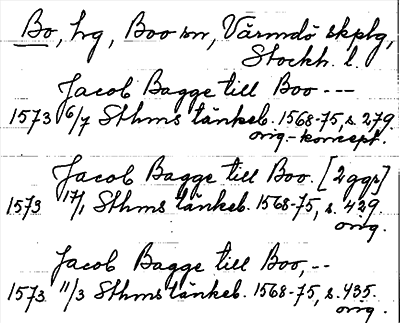 Bo, hg, Boo sn, Värmdö skplg,
Stockh. l.
Jacob Bagge till Boo ---
1573 6/7 Sthms tänkeb. 1568-75, s. 279
orig.-koncept.
Jacob Bagge till Boo. [2 ggr]
1573 17/1 Sthms tänkeb. 1568-75, s. 429.
orig.
Jacob Bagge till Boo, --
1573 11/3 Sthms tänkeb. 1568-75, s. 435.
orig.